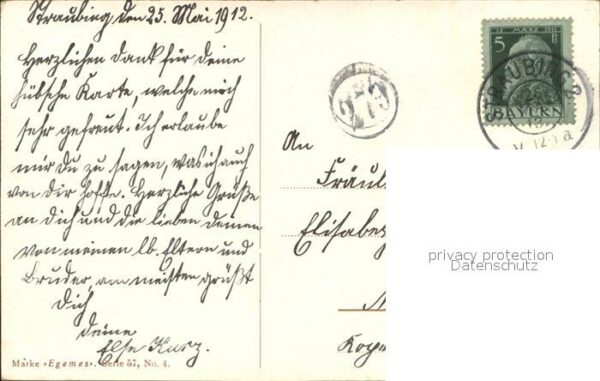 Straubing den 25. Mai 1912.
Herzlichen Dank für deine
hübsche Karte, welche mich
sehr gefreut. Ich erlaube
mir Du zu sagen, was ich auch
von dir hoffe. Herzliche Grüße
an dich und die lieben deinen
von meinen lb. Eltern und
Bruder, am meisten grüßt
Dich
deine
Else Kurz.
Marke »Egemes«. Serie 57, No. 4.
5
BAYERN
STRAUBING 2
An
Fräul
Elisabe
privacy protection
Datenschutz